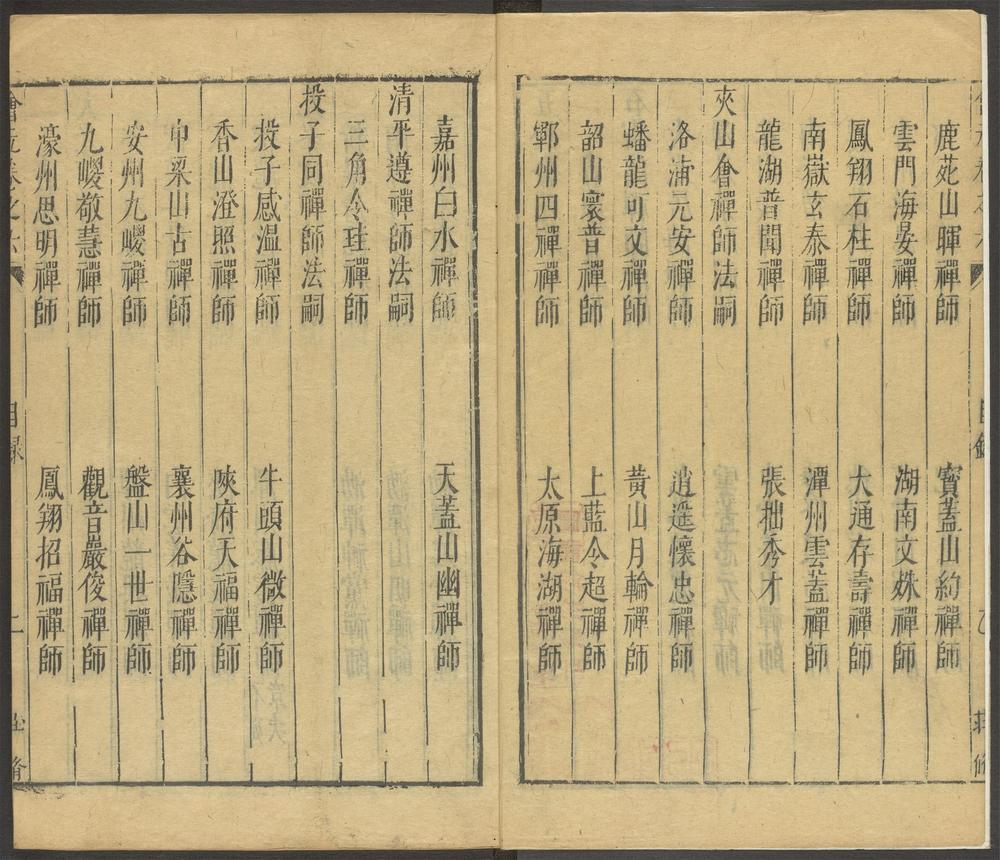 鹿苑山暉禪師 寳蓋山約禪師
雲門海晏禪師 湖南文姝禪師
鳳翔石柱禪師 大通存壽禪師
南嶽玄泰禪師 潭州雲蓋禪師
龍湖普聞禪師 張拙秀才
夾山會禪師法嗣
洛浦元安禪師 逍遥懷忠禪師
蟠龍可文禪師 黃山月輪禪師
韶山寰普禪師 上藍令超禪師
鄆州四禪禪師 太原海湖禪師
嘉州白水禪師 天蓋山幽禪師
清平遵禪師法嗣
三角令珪禪師
投子同禪師法嗣
投子感温禪師 牛頭山微禪師
香山澄照禪師 陜府天福禪師
中梁山古禪師 襄州谷隱禪師
安州九嵕禪師 盤山二世禪師
九嵕敬慧禪師 觀音巖俊禪師
濠州思明禪師 鳳翔招福禪師
目録 二